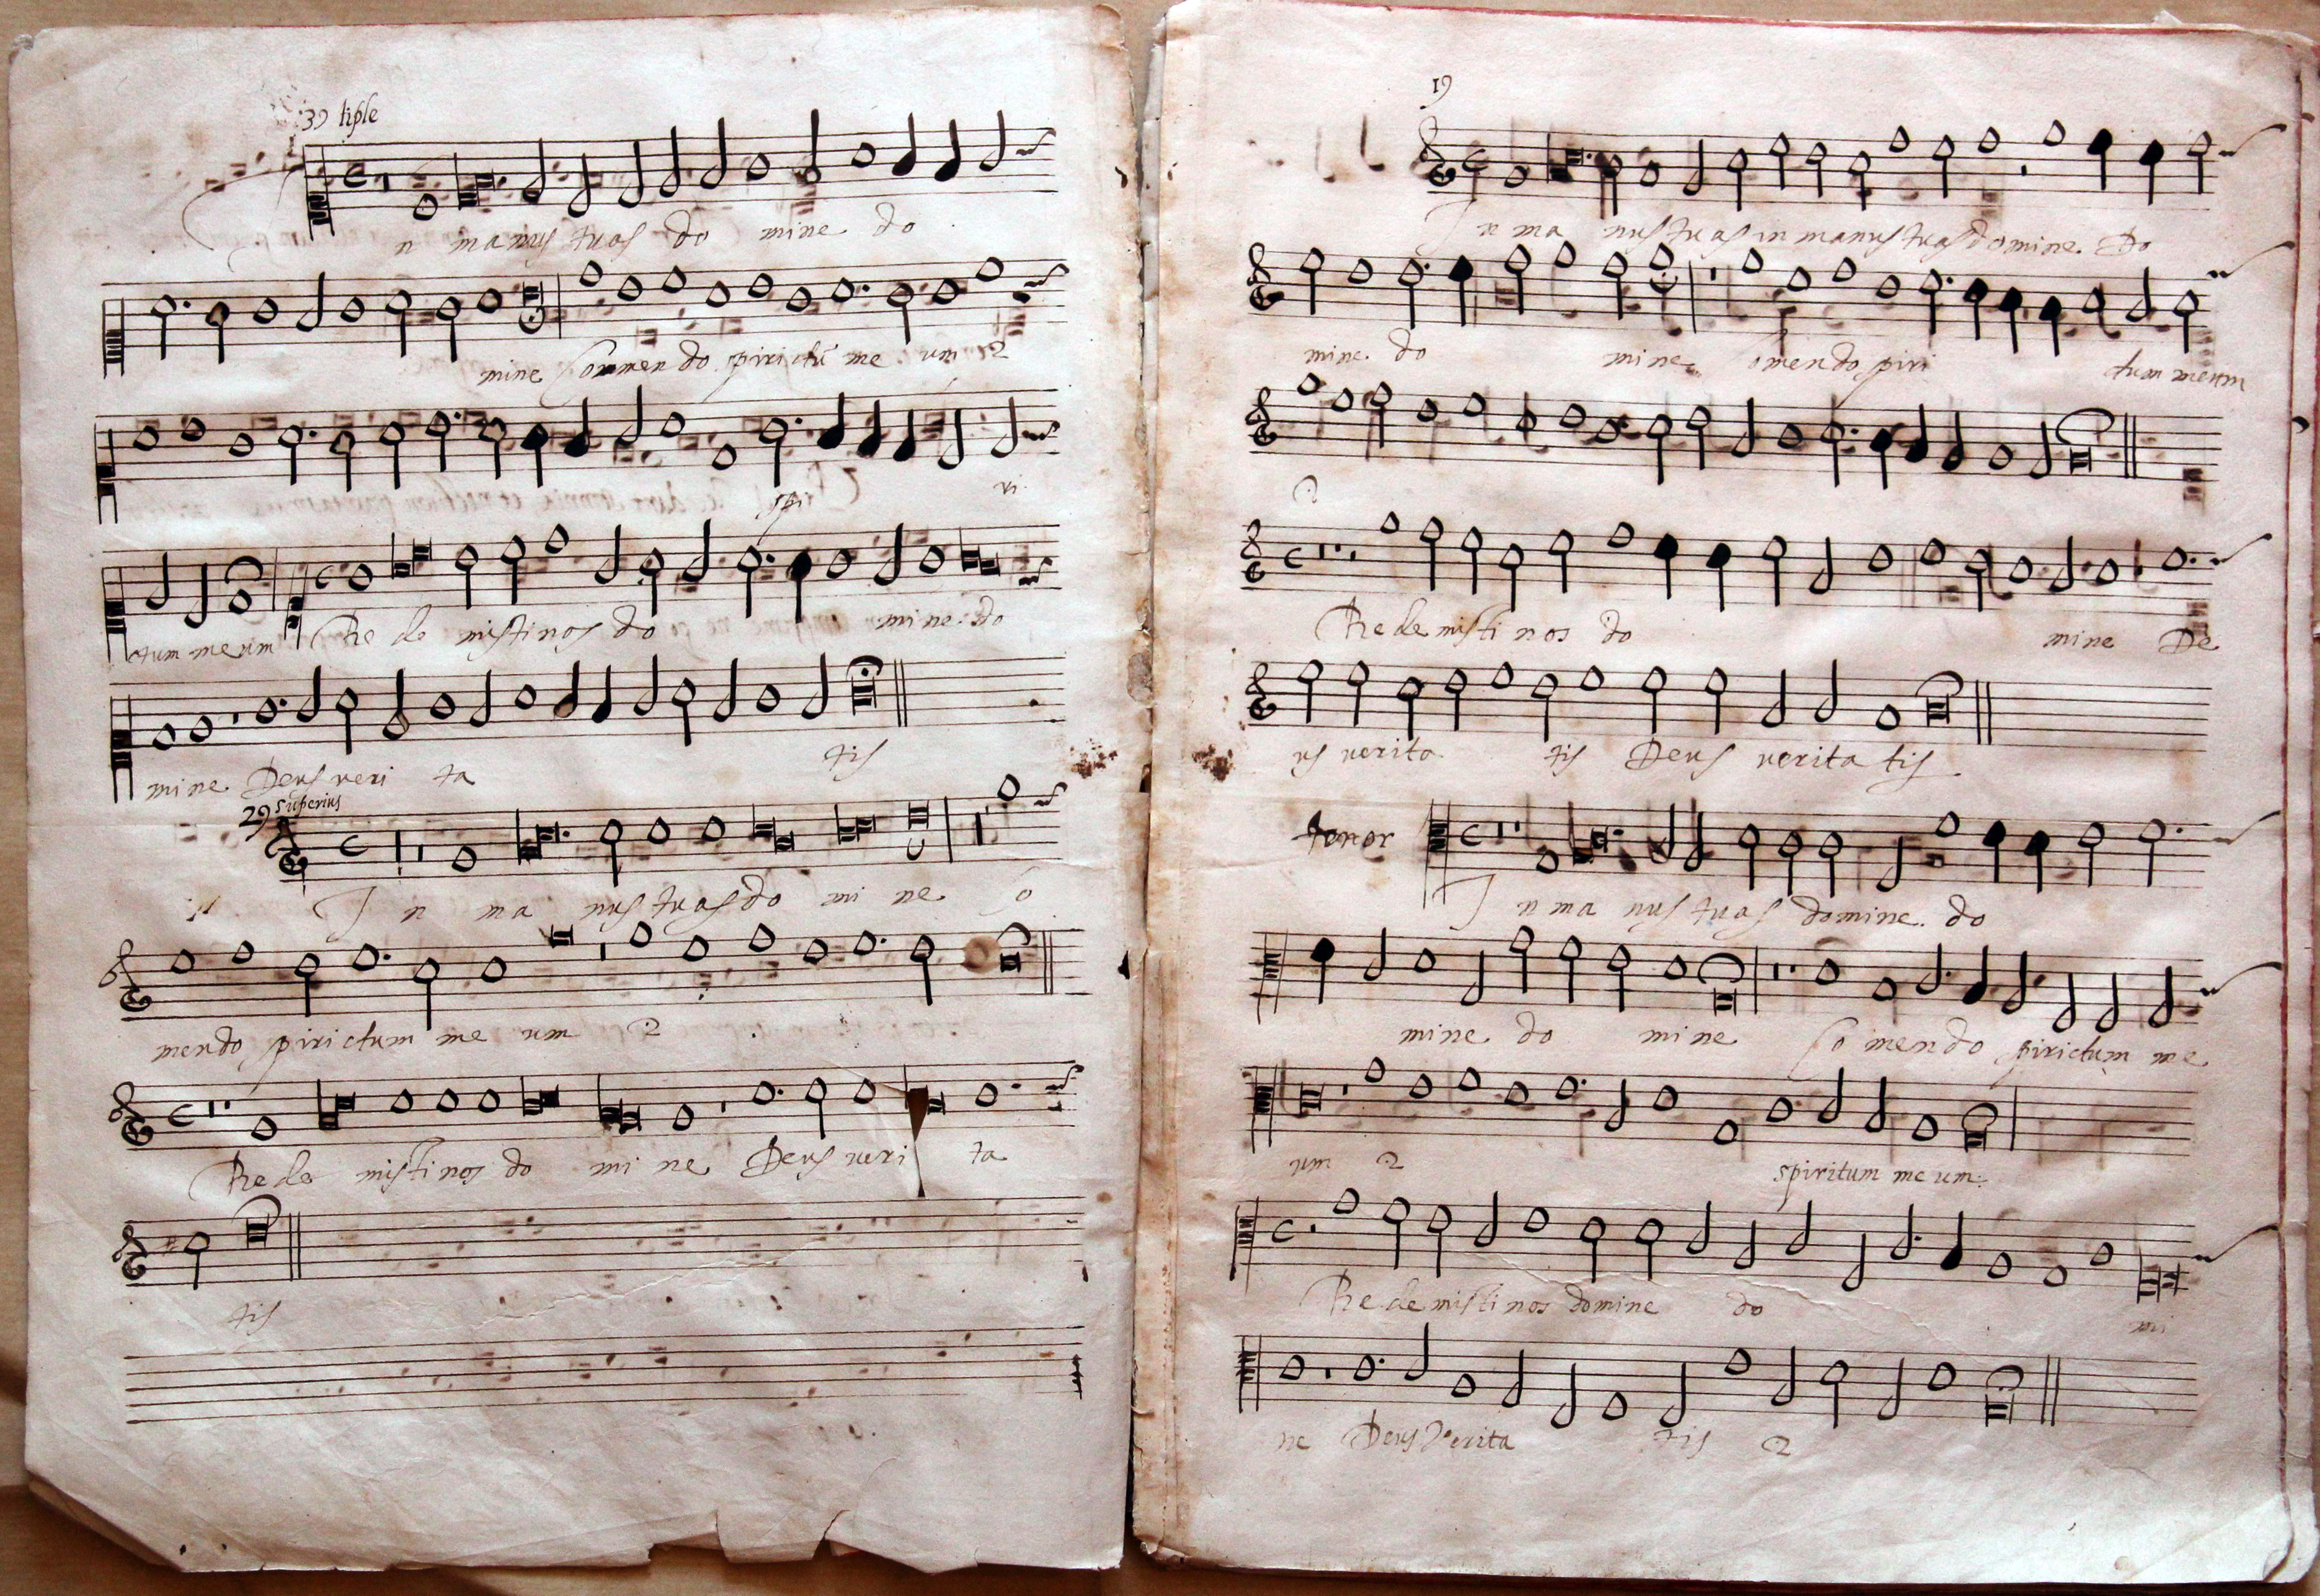 39 tiple
n manus tuas do mine do
mine Conmendo spirictū me um 2
spi ri
ctum meum Re de mistinos do mine do
mine Deus veri ta tis
29 superius
I n ma nus tuas do mi ne o
mendo spirictum me um 2
Rede mistinos do mi ne Deus veri ta
tis
19
I n ma nus tuas in manus tuas domine Do
mine do mine omendo spiri ctum meum
2
Redemisti nos do mine De
us verita tis Deus verita tis
tenor
I n ma nus tuas domine do
mine do mine Co mendo spirictum me
um 2 spiritum meum
Redemistinos domine do mi
ne Deus Verita tis 2